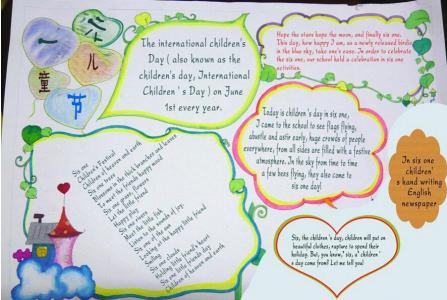 六
一
儿
童
节
The international children's
Day ( also known as the
children's day, International
Children ' s Day ) on June
1st every year.
Hope the stars hope the moon, and finally six one.
This day, how happy I am, as a newly released birdie in
the blue sky, take one's ease. In order to celebrate
the six one, our school held a celebration in six one
activities.
Today is children's day in six one,
I came to the school to see flags flying,
hustle and astir early, huge crowds of people
everywhere, from all sides are filled with a festive
atmosphere. In the sky from time to time
a few bees flying, they also come to
six one day!
In six one
children'
s hand writing
English
newspaper
Six one
Children's Festival
Children of heaven and earth
Six one trees
Blossoms in the thick branches and leaves
To meet the friends happy mood
Six one grass, flowers
Let the little friend
Happy play
Six one rivers
Meet the little fish
Listen to the sounds of joy.
Six one of the sun
Looking at the happy little friend
Smiling
Six one clouds
Holding little friend's heart
Six one little friends day
Children of heaven and earth
Six, the children's day, children will put on
beautiful clothes, rapture to spend their
holiday. But, you know, 'six, a' children'
s day come from? Let me tell you!